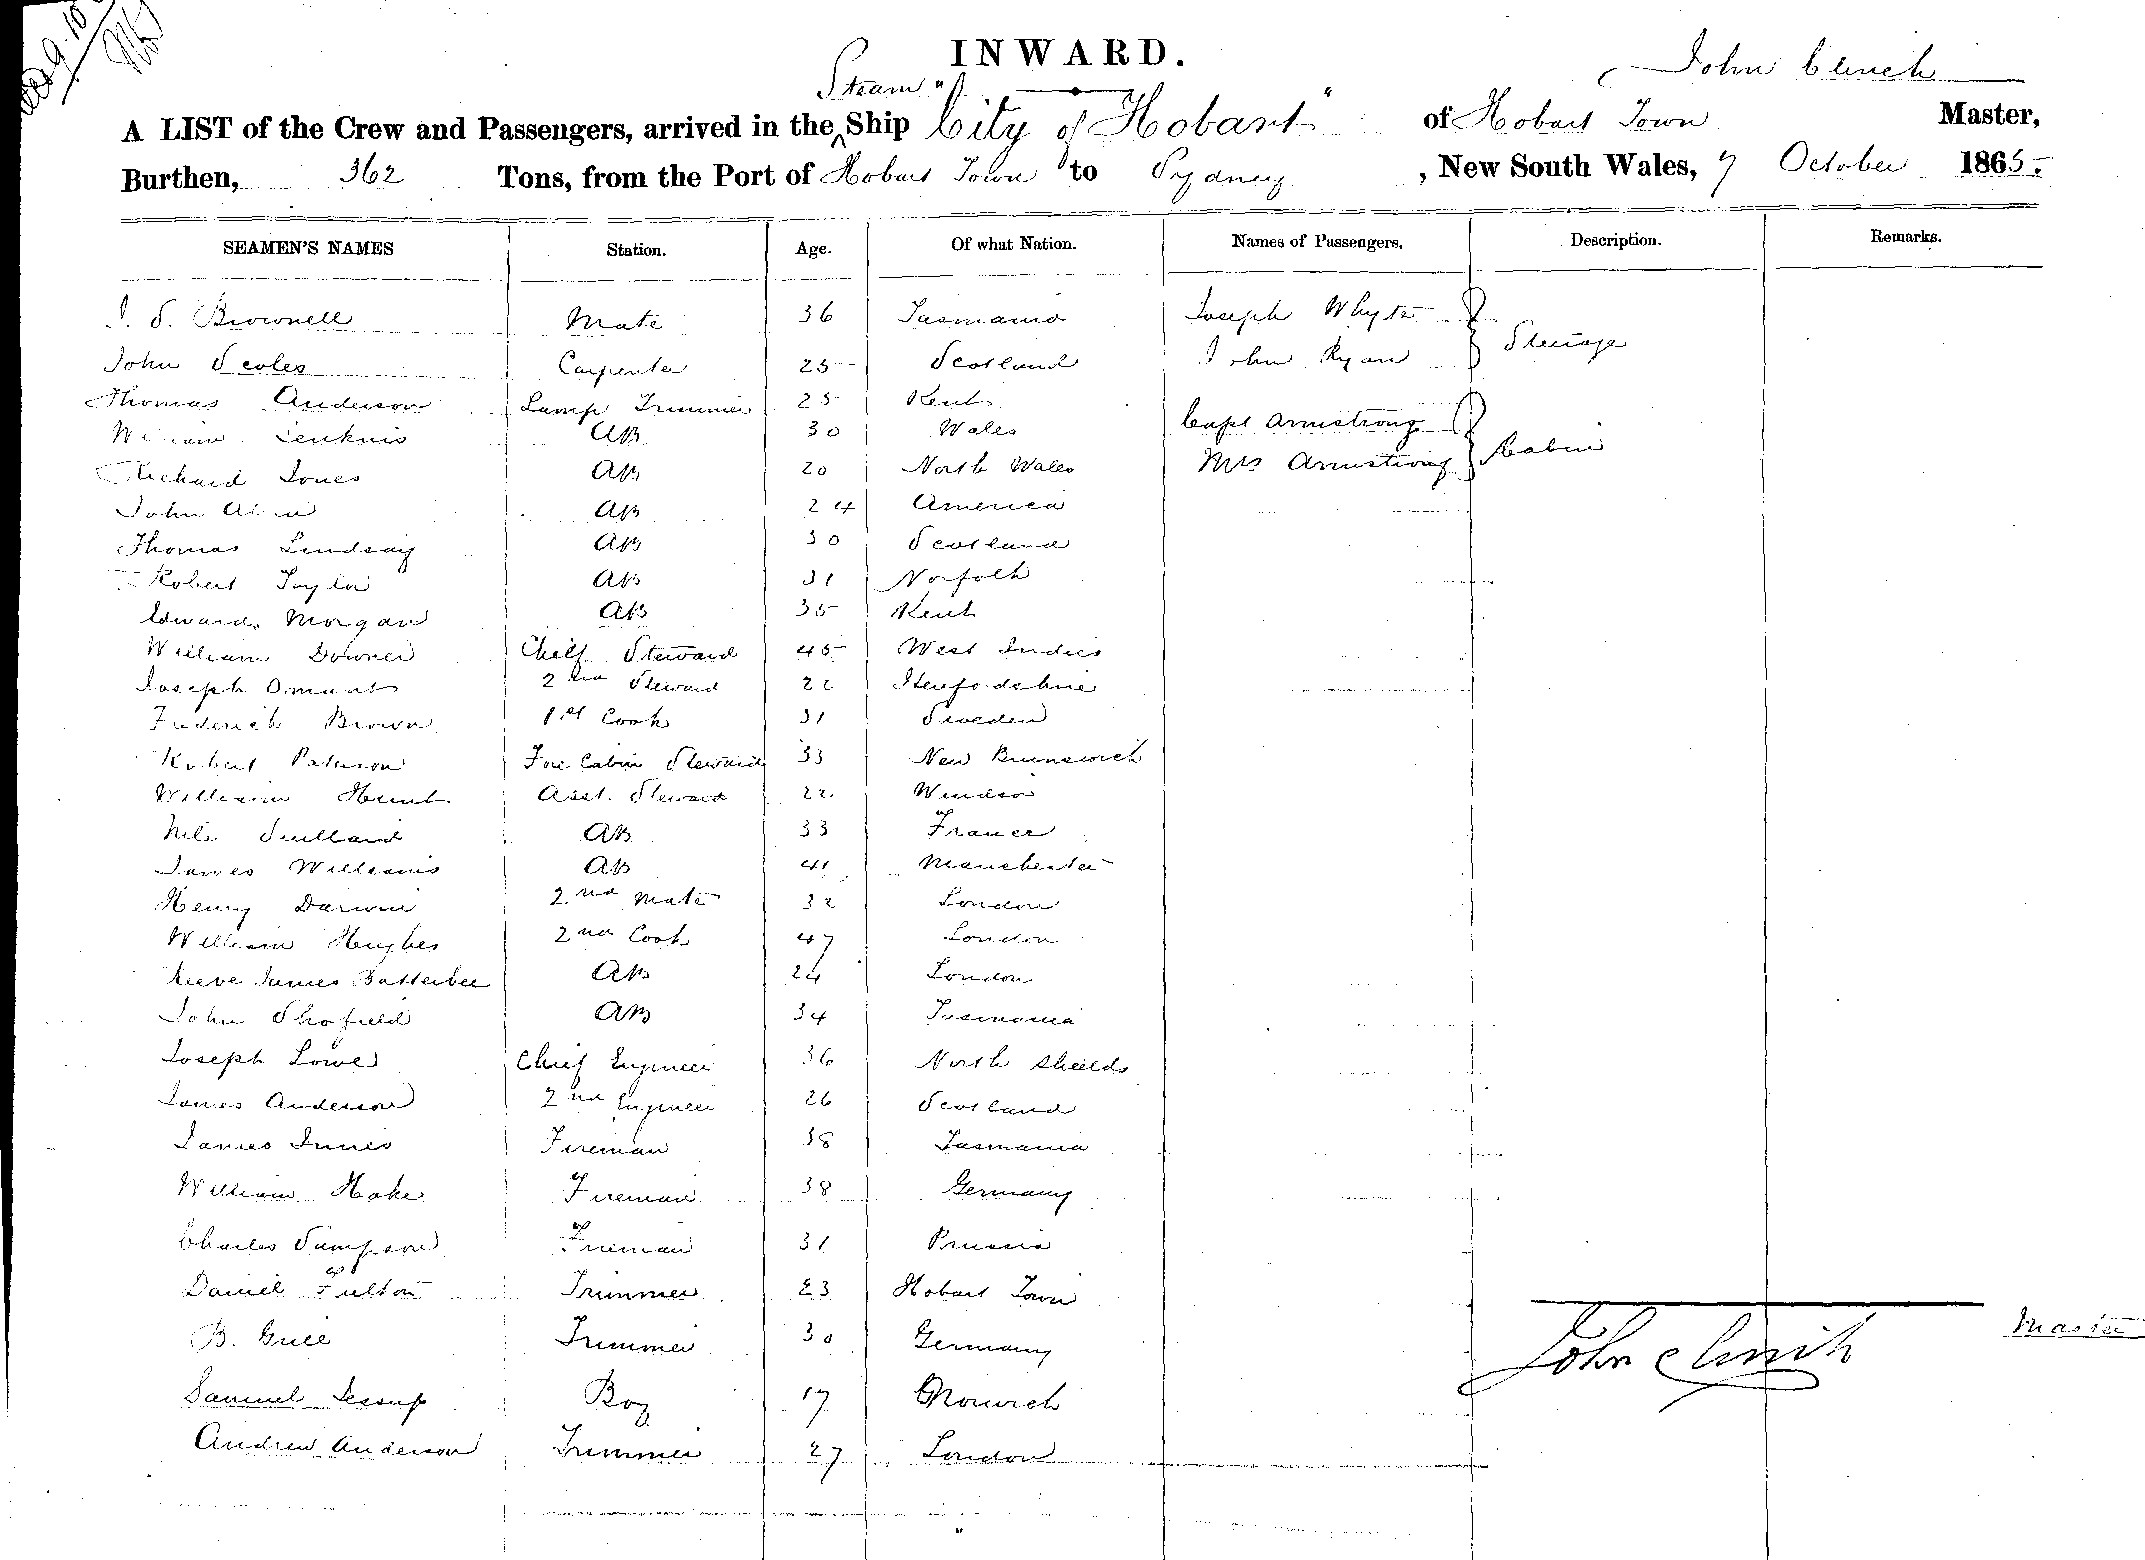 INWARD.
John Clinch
Steam
A LIST of the Crew and Passengers, arrived in the ^ Ship "City of Hobart" of Hobart Town Master,
Burthen, 362 Tons, from the Port of Hobart Town to Sydney, New South Wales, 7 October 1865
SEAMEN'S NAMES Station. Age. Of what Nation. Names of Passengers. Description. Remarks.
J. S. Brownell Mate 36 Tasmania Joseph Whyte
Steerage
John Scoles Carpenter 25 Scotland John Ryan
Thomas Anderson Lamp Trimmer 25 Kent Capt Armstrong
Cabin
William Jenkins AB 30 Wales Mrs Armstrong
Richard Jones AB 20 North Wales
John AB 24 America
Thomas Lindsay AB 30 Scotland
Robert Taylor AB 31 Norfolk
Edward Morgan AB 35 Kent
William Downer Chief Steward 45 West Indies
Joseph Omant 2nd Steward 22 Herfordshire
Frederick Brown 1st Cook 31 Sweden
Robert Paterson Fore Cabin Steward 33 New Brunswick
William Hunt Asst. Steward 22 Windsor
AB 33 France
James Williams AB 41 Manchester
Henry Darwin 2nd Mate 32 London
William Hughes 2nd Cook 47 London
Reeve James Batterbee AB 24 London
John Shofield AB 34 Tasmania
Joseph Lowe Chief Engineer 36 North Shields
James Anderson 2nd Engineer 26 Scotland
James Innis Fireman 38 Tasmania
William Hake Fireman 38 Germany
Charles Sampson Fireman 31 Prussia
Daniel Fulton Trimmer 23 Hobart Town
B. Grice Trimmer 30 Germany
John Clinch Master
Samuel Jessup Boy 17 Norwich
Andrew Anderson Trimmer 27 London